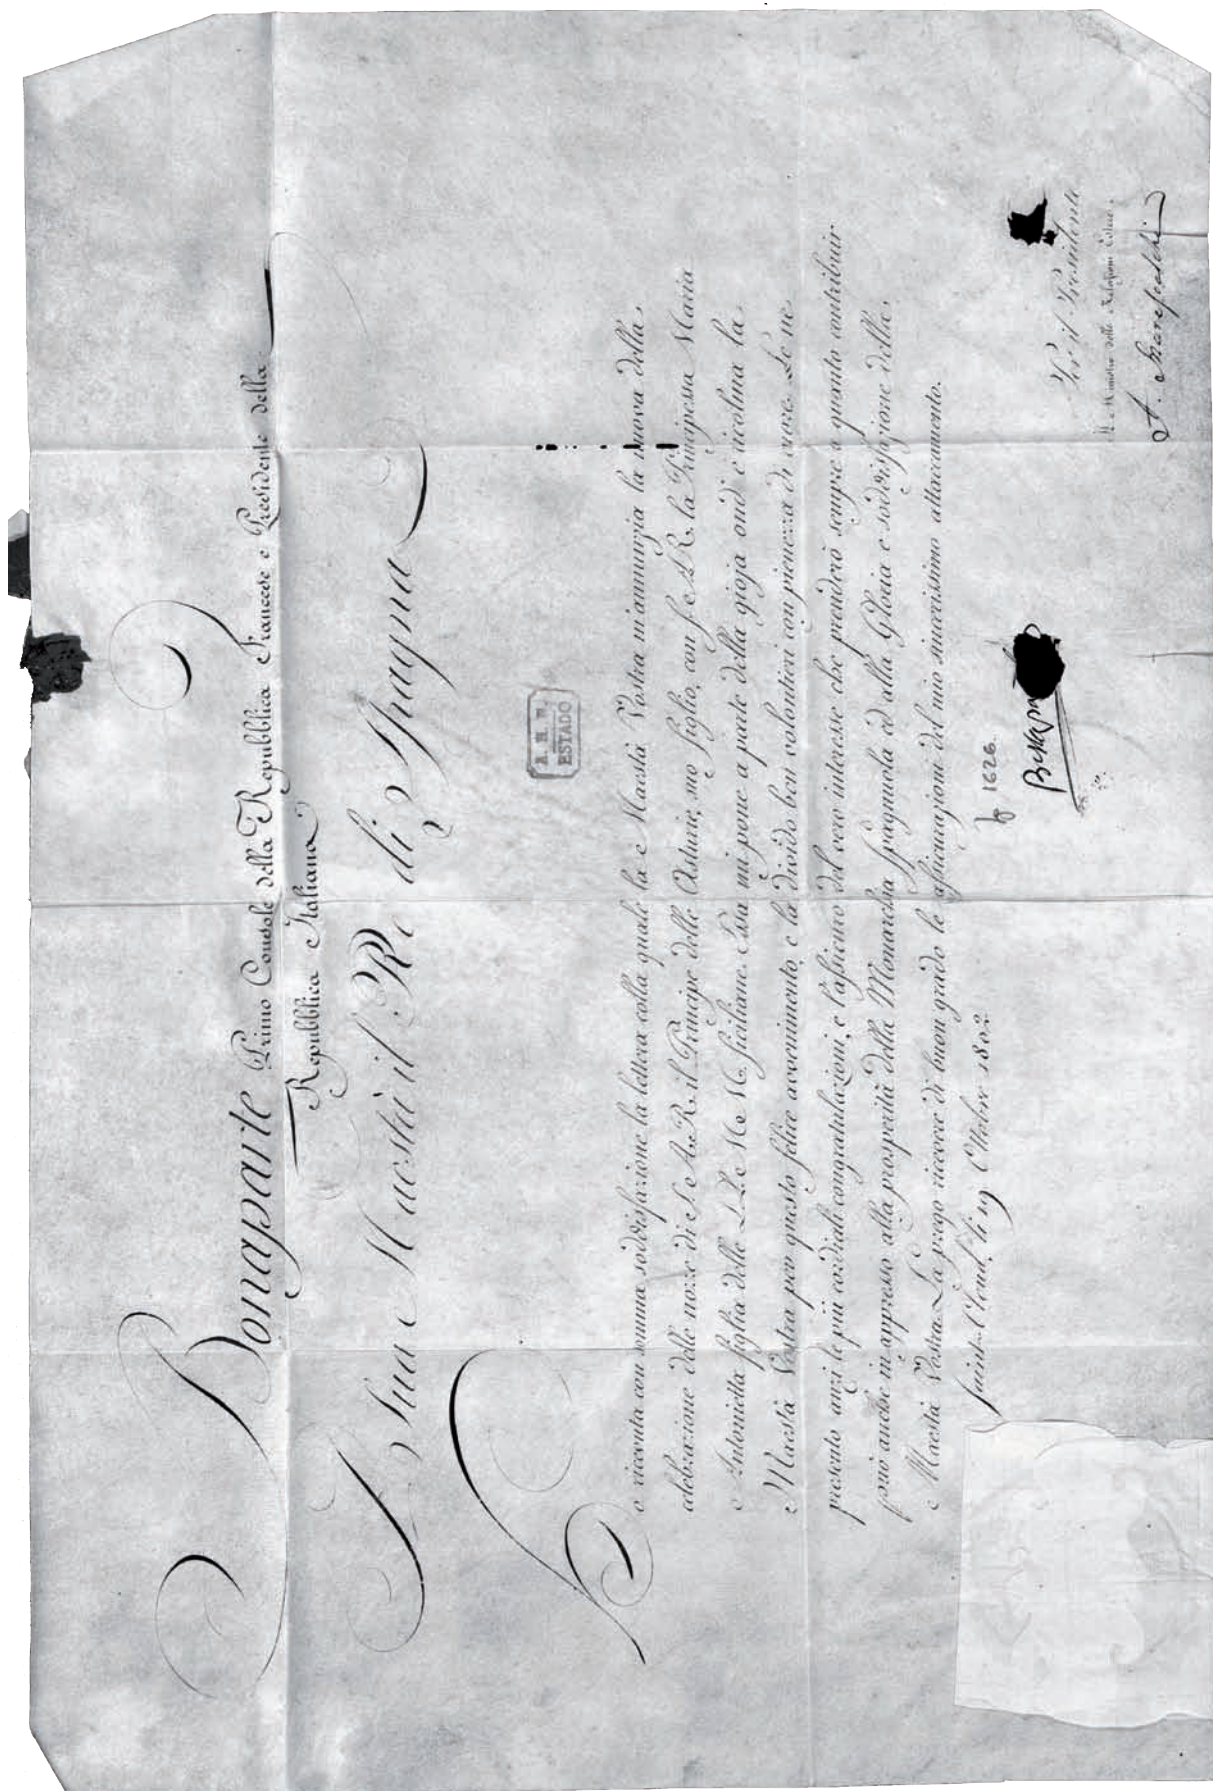 Bonaparte Primo Console della Repubblica Francese e Presidente della
Repubblica Italiana
A Sua Maestà il Re di Spagna
A. H. N.
ESTADO
Ho ricevuta con somma soddisfazione la lettera colla quale la Maestà Vostra m'annunzia la nuova della
celebrazione delle nozze di S. A. R. il Principe delle Asturie, suo figlio, con S. A. R. la Principessa Maria
Antonietta figlia delle LL. MM. Siciliane. Essa mi pone a parte della gioja ond'è ricolma la
Maestà Vostra per questo felice avvenimento, e la divido ben volontieri con pienezza di cuore. Le ne
presento anzi le più cordiali congratulazioni, e l'assicuro del vero interesse che prenderò sempre a quanto contribuir
possa anche in appresso alla prosperità della Monarchia Spagnuola ed alla Gloria e soddisfazione della
Maestà Vostra. La prego ricevere di buon grado le assicurazioni del mio sincerissimo attaccamento.
Saint-Cloud, li 19 Ottobre 1802.
1626.
Bonaparte
Per il Presidente
Il Ministro delle Relazioni Estere
F. Marescalchi